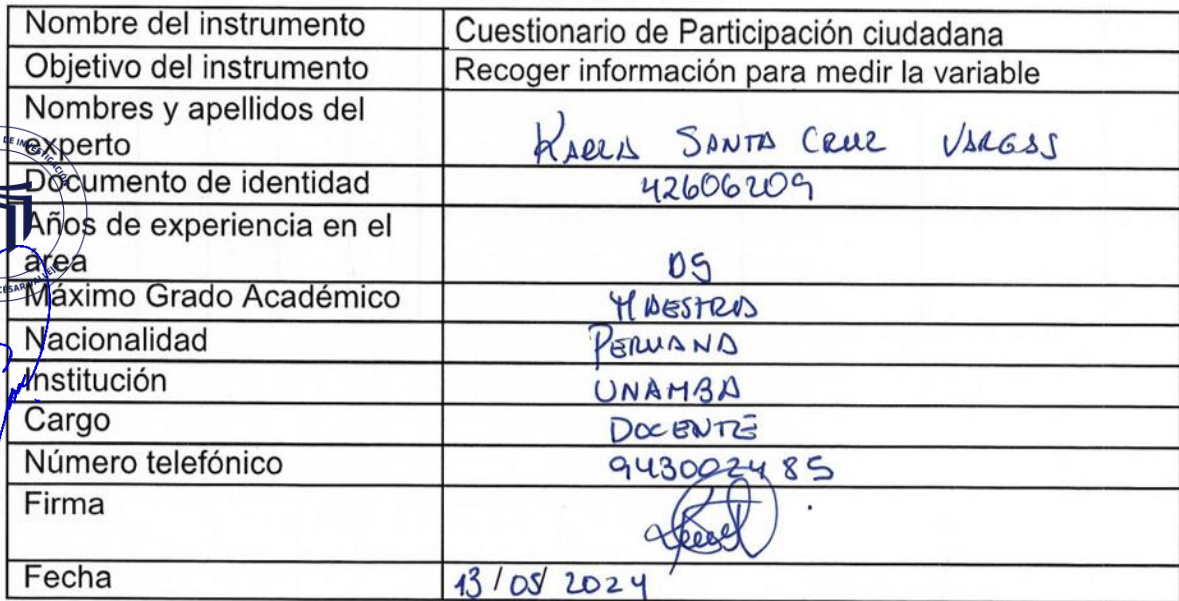 Nombre del instrumento Cuestionario de Participación ciudadana
Objetivo del instrumento Recoger información para medir la variable
Nombres y apellidos del
experto KARLA SANTA CRUZ VARGAS
Documento de identidad 42606209
Años de experiencia en el
área 05
Máximo Grado Académico MAESTRIA
Nacionalidad PERUANA
Institución UNAMBA
Cargo DOCENTE
Número telefónico 943002485
Firma
Fecha 13/05/2024
DE INVESTIGACIÓN
CESAR VALLEJO